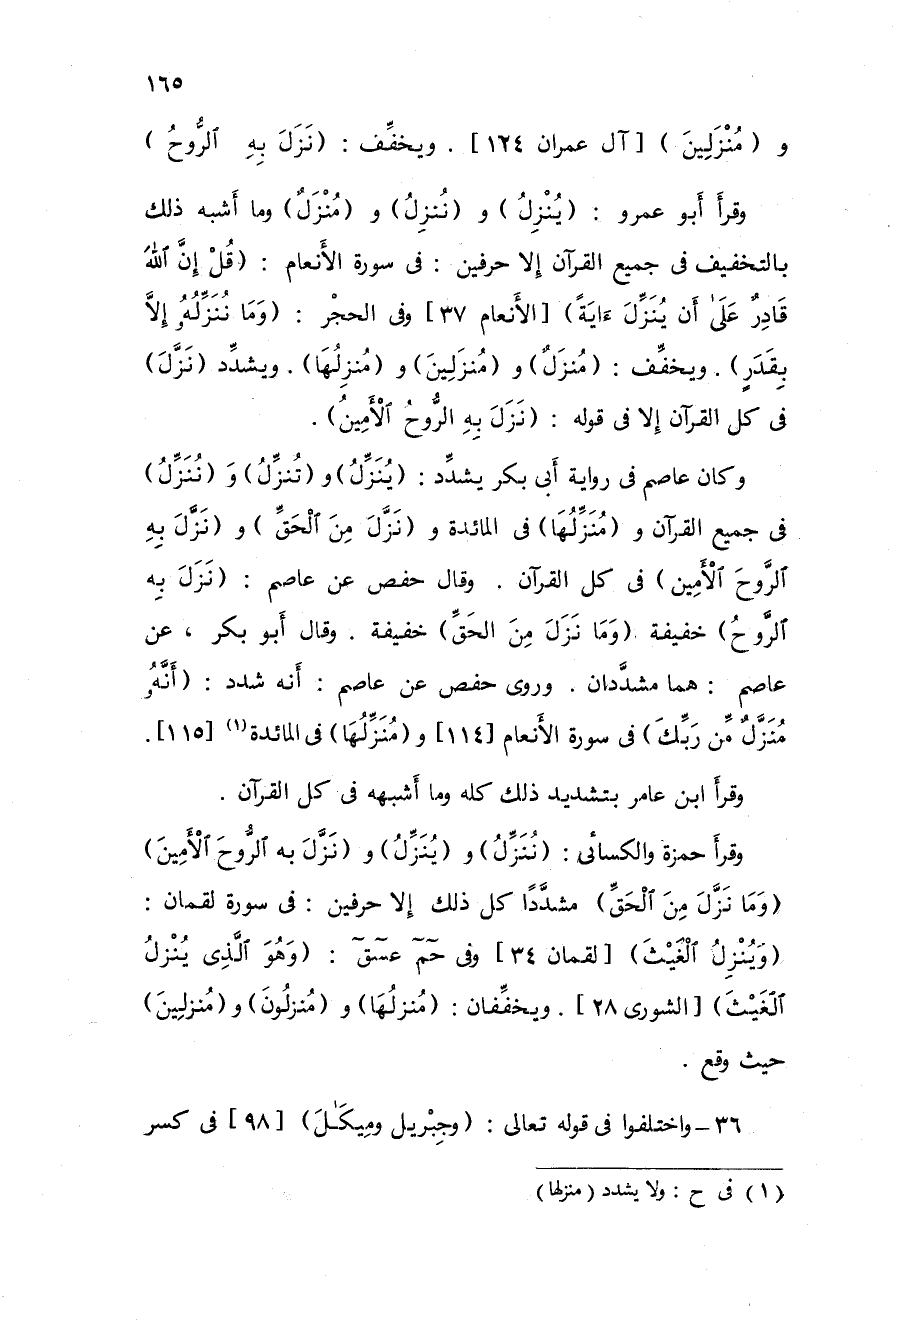 ١٦٥
و ( مُنْزَلِينَ ) [ آل عمران ١٢٤ ] . ويخفِّف : ( نَزَلَ بِهِ ٱلرُّوحُ )
وقرأ أبو عمرو : ( يُنْزِلُ ) و ( نُنزِلُ ) و ( مُنْزَلٌ ) وما أشبه ذلك
بالتخفيف فى جميع القرآن إلا حرفين : فى سورة الأنعام : ( قُلْ إِنَّ ٱللَّهَ
قَادِرٌ عَلَىٰ أَن يُنَزِّلَ ءَايَةً ) [ الأنعام ٣٧ ] وفى الحجْر : ( وَمَا نُنَزِّلُهُۥ إِلاَّ
بِقَدَرٍ ) . ويخفِّف : ( مُنزَلٌ ) و ( مُنزَلِينَ ) و ( مُنزِلُهَا ) . ويشدِّد ( نَزَّلَ )
فى كل القرآن إلا فى قوله : ( نَزَلَ بِهِ الرُّوحُ ٱلْأَمِينُ ) .
وكان عاصم فى رواية أبى بكر يشدِّد : ( يُنَزِّلُ ) و ( تُنزِّلُ ) وَ ( نُنَزِّلُ )
فى جميع القرآن و ( مُنَزِّلُهَا ) فى المائدة و ( نَزَّلَ مِنَ ٱلْحَقِّ ) و ( نَزَّلَ بِهِ
ٱلرَّوحَ ٱلْأَمِين ) فى كل القرآن . وقال حفص عن عاصم : ( نَزَلَ بِه
ٱلرَّوحُ ) خفيفة ( وَمَا نَزَلَ مِنَ الحَقِّ ) خفيفة . وقال أبو بكر ، عن
عاصم : هما مشدَّدان . وروى حفص عن عاصم : أنه شدد : ( أَنَّهُۥ
مُنَزَّلٌ مِّن رَبِّكَ ) فى سورة الأنعام [ ١١٤ ] و ( مُنَزِّلُهَا ) فى المائدة (١) [ ١١٥ ] .
وقرأ ابن عامر بتشديد ذلك كله وما أشبهه فى كل القرآن .
وقرأ حمزة والكسائى : ( نُنَزِّلُ ) و ( يُنَزِّلُ ) و ( نَزَّلَ به ٱلرُّوحَ ٱلْأَمِينَ )
( وَمَا نَزَّلَ مِنَ ٱلْحَقِّ ) مشدَّدًا كل ذلك إلا حرفين : فى سورة لقمان :
( وَيُنْزِلُ ٱلْغَيْثَ ) [ لقمان ٣٤ ] وفى حٓمٓ عٓسٓقٓ : ( وَهُوَ ٱلَّذِى يُنْزِلُ
ٱلْغَيْثَ ) [ الشورى ٢٨ ] . ويخفِّفان : ( مُنزِلُهَا ) و ( مُنزِلُونَ ) و ( مُنزِلِينَ )
حيث وقع .
٣٦ – واختلفوا فى قوله تعالى : ( وجِبْرِيل ومِيكَـٰلَ ) [ ٩٨ ] فى كسر
( ١ ) فى ح : ولا يشدد ( منزلها )